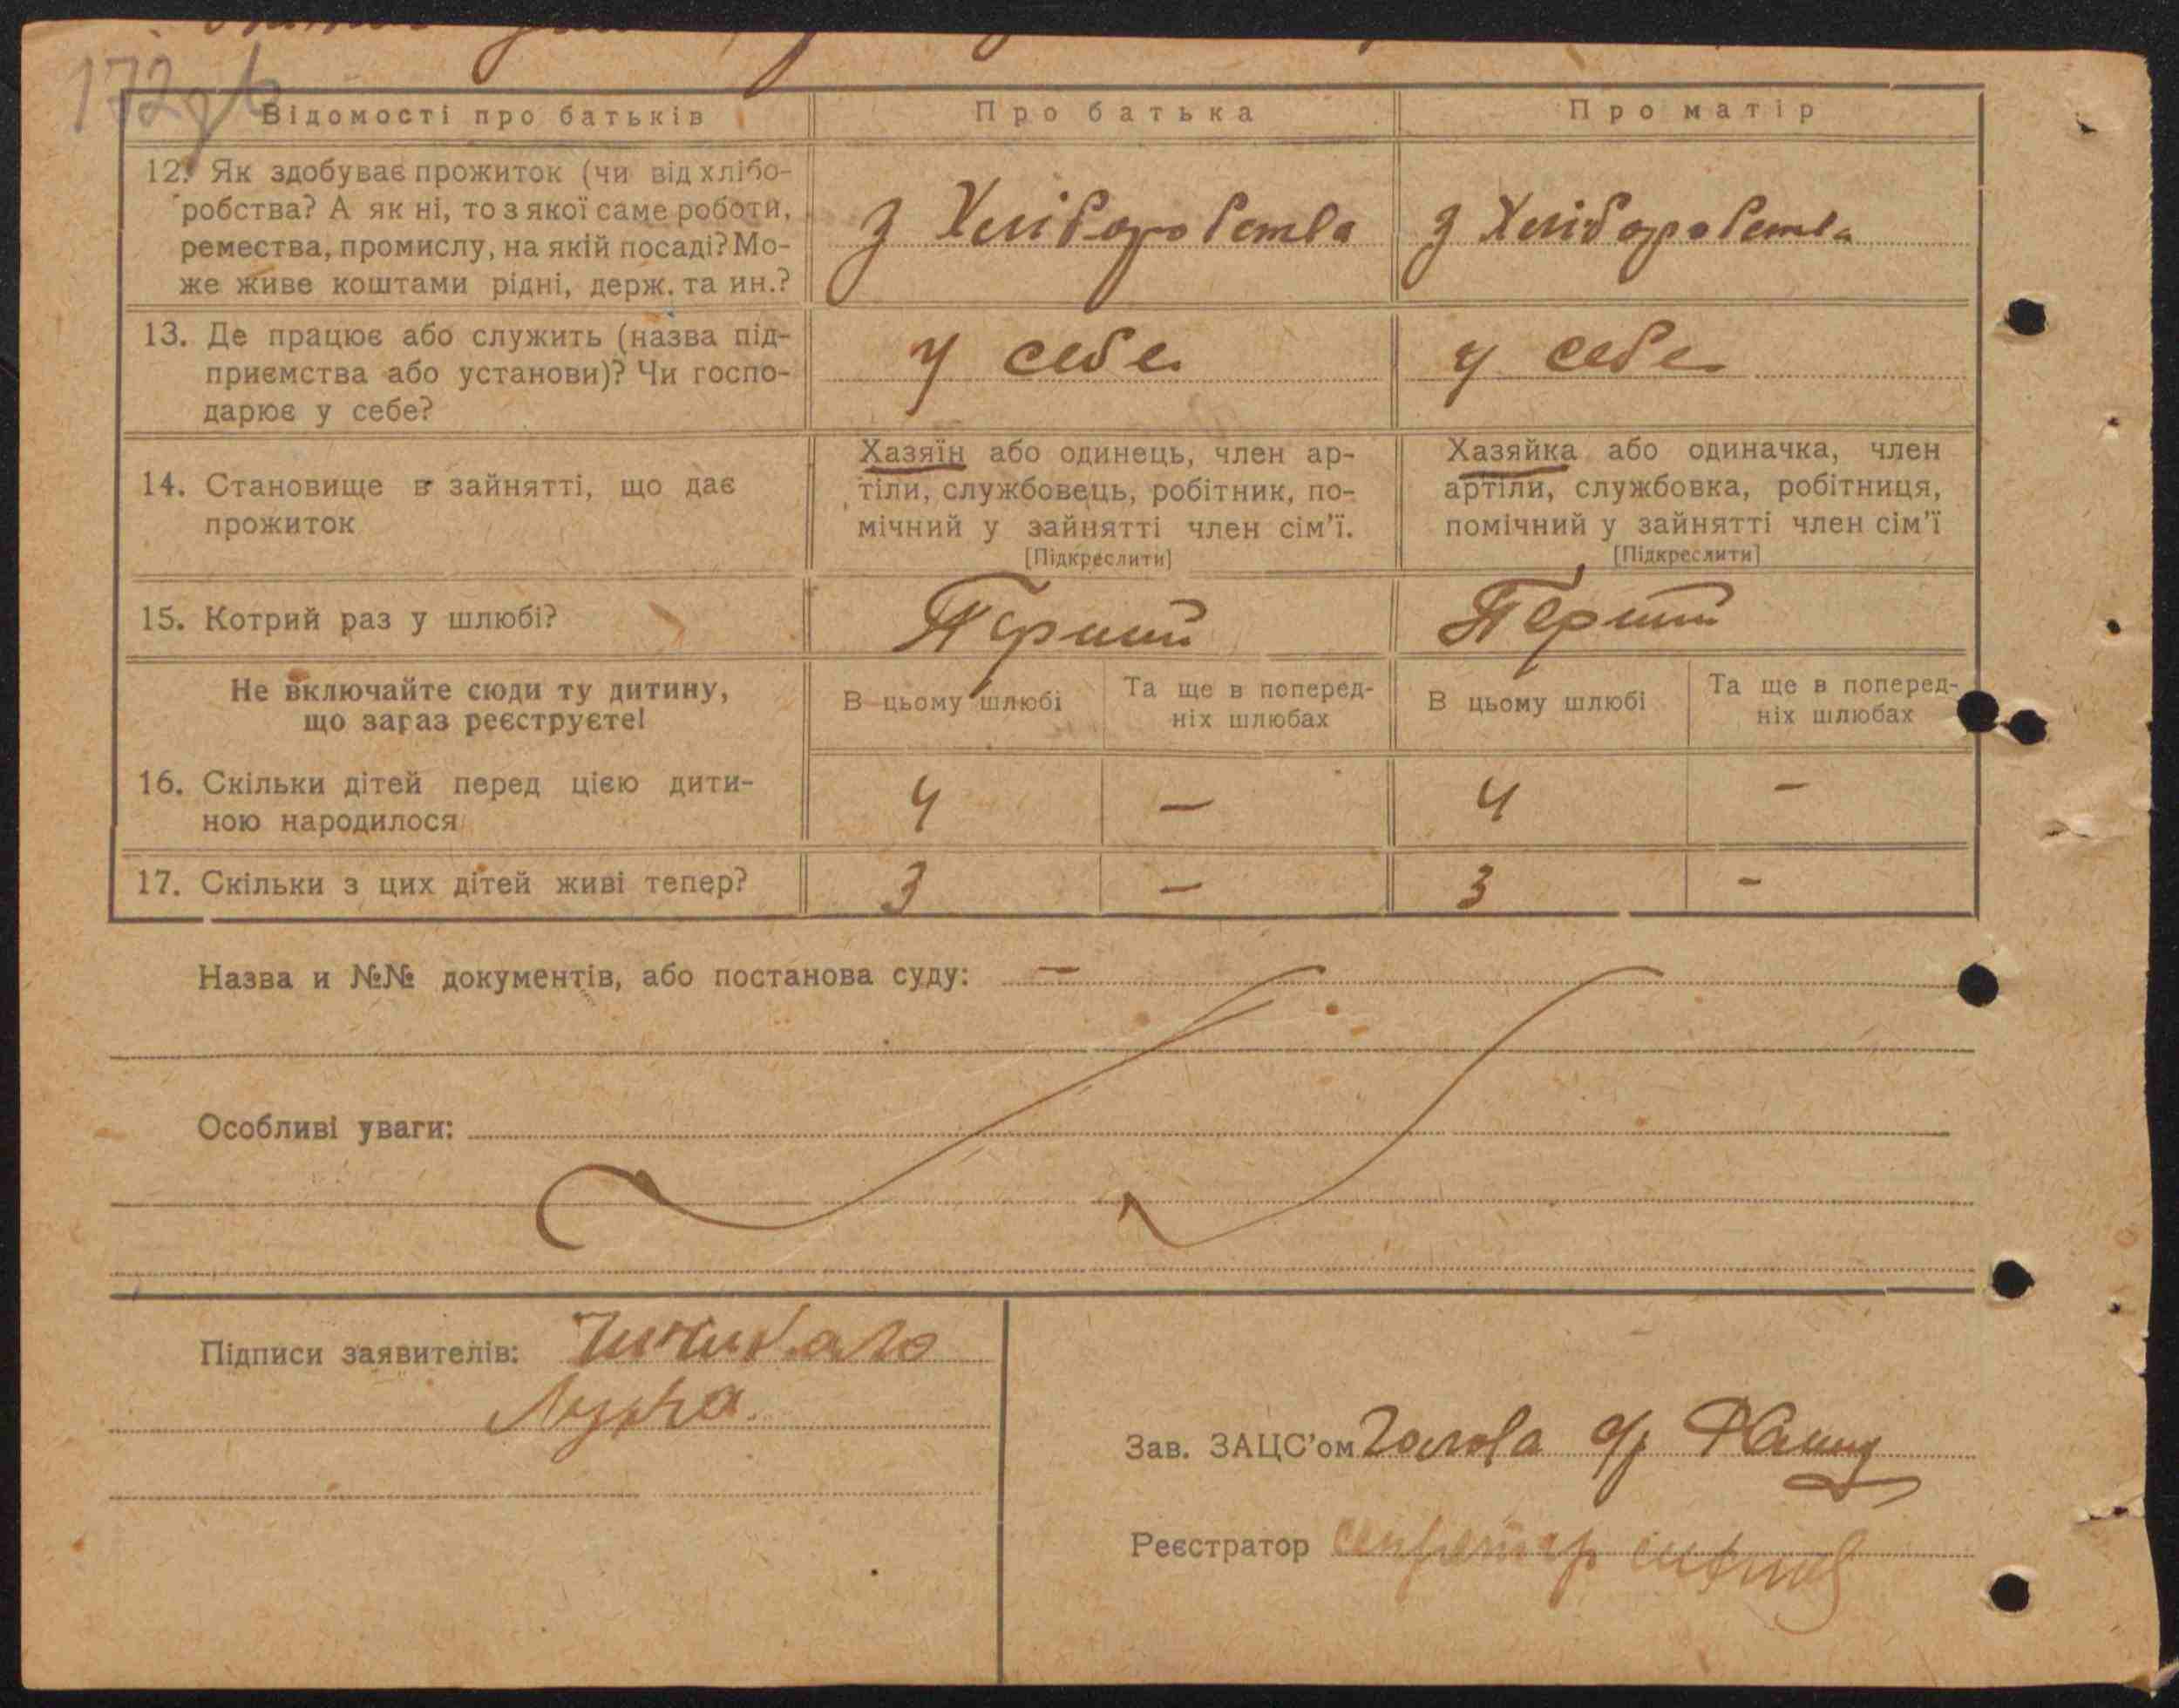 172зв
Відомості про батьків
Про батька
Про матір
12. Як здобуває прожиток (чи від хлібо-
робства? А як ні, то з якої саме роботи,
ремества, промислу, на якій посаді? Мо-
же живе коштами рідні, держ. та ин.?
з Хліборобства
з Хліборобства
13. Де працює або служить (назва під-
приємства або установи)? Чи госпо-
дарює у себе?
у себе
у себе
14. Становище в зайнятті, що дає
прожиток
Хазяїн або одинець, член ар-
тіли, службовець, робітник, по-
мічний у зайнятті член сім'ї.
[Підкреслити]
Хазяйка або одиначка, член
артіли, службовка, робітниця,
помічний у зайнятті член сім'ї
[Підкреслити]
15. Котрий раз у шлюбі?
Перший
Перший
Не включайте сюди ту дитину,
що зараз реєструєте!
В цьому шлюбі
Та ще в поперед-
ніх шлюбах
В цьому шлюбі
Та ще в поперед-
ніх шлюбах
16. Скільки дітей перед цією дити-
ною народилося
4
—
4
—
17. Скільки з цих дітей живі тепер?
3
—
3
-
Назва и №№ документів, або постанова суду: —
Особливі уваги:
Підписи заявителів: Чичикало
Лука.
Зав. ЗАЦС'ом Голова с/р
Реєстратор секретар